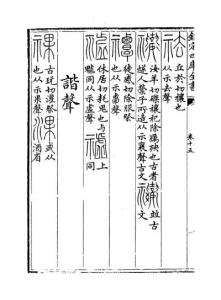 欽定四庫全書
卷十五
丘於切禳也
从示去聲
汝羊切磔禳祀除殃也古者
燧人禜子所造从示襄聲古文
並古
文
徒感切除服祭
也从示覃聲
休居切耗鬼也與
魖同从示虛聲
上
同
諧聲
古玩切灌祭
也从示果聲
或从
水省